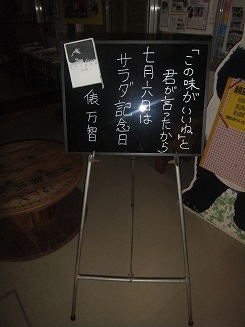 「この味がいいね」と
君が言ったから
七月六日は
サラダ記念日
俵 万智